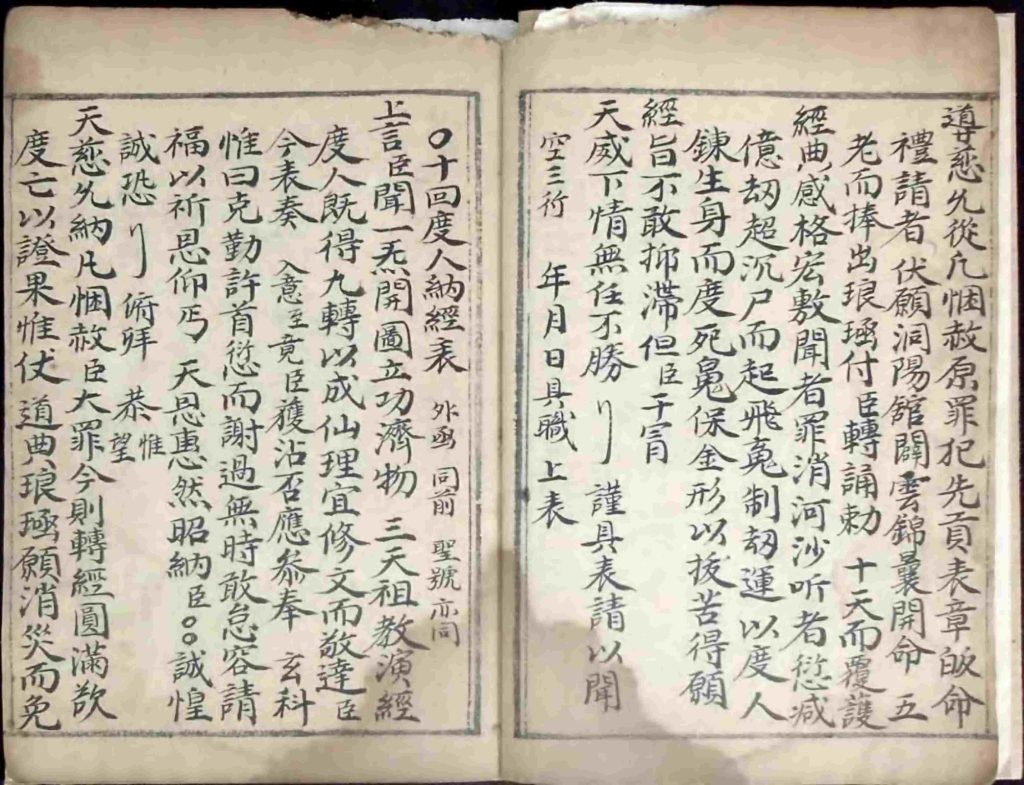 導慈允從凢悃赦原罪犯先貢表章皈命
禮請者伏願洞陽舘闢雲錦囊開命 五
老而捧出琅璚付臣轉誦勅 十天而覆護
經典感格宏敷聞者罪消河沙听者愆减
億刼超沉尸而起飛䰟制刼運以度人
鍊生身而度死䰟保金形以拔苦得願
經旨不敢抑滯但臣干冐
天威下情無任不勝〢謹具表請以聞
空三行 年月日具職 上表
〇十回度人納經表 外函 同前 聖號亦同
上言臣聞一炁開圖立功濟物 三天祖教演經
度人既得九轉以成仙理宜修文而敬達臣
今表奏 入意至竟臣獲沾否應叅奉 玄科
惟曰克勤許首愆而謝過無時敢怠容請
福以祈恩仰丐 天恩惠然昭納臣〇〇誠惶
誠恐〢俯拜 恭惟望
天慈允納凢悃赦臣大罪今則轉經圓滿欲
度亡以證果惟仗 道典琅璚願消災而免